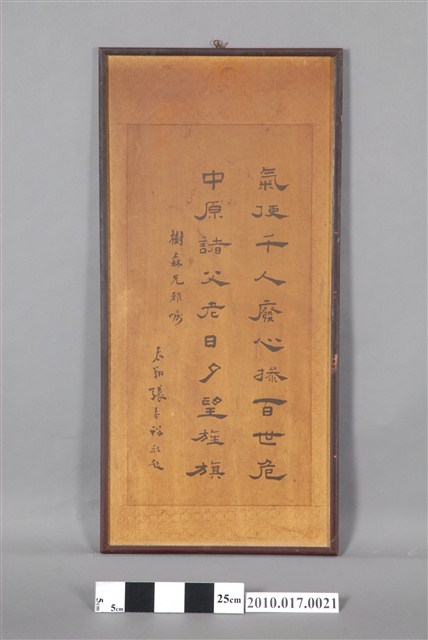 氣使千人廢心操百世危
中原諸父老日夕望旌旗
樹森兄
張
5cm
25cm
2010.017.0021